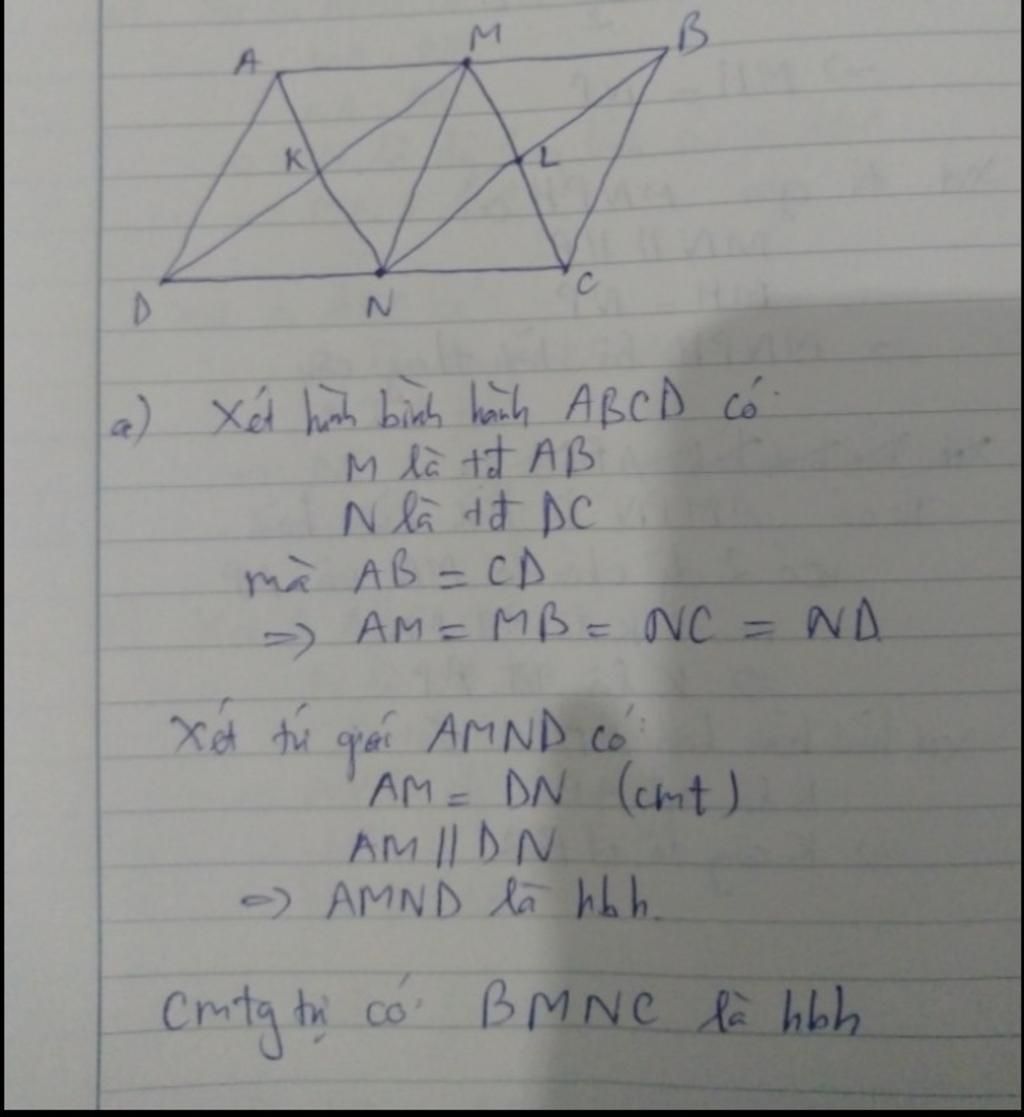 A M B
K L
D N C
a) Xét hình bình hành ABCD có:
M là tđ AB
N là tđ DC
mà AB = CD
=> AM = MB = NC = ND
Xét tứ giác AMND có:
AM = DN (cmt)
AM // DN
=> AMND là hbh.
Cmtg tự có: BMNC là hbh